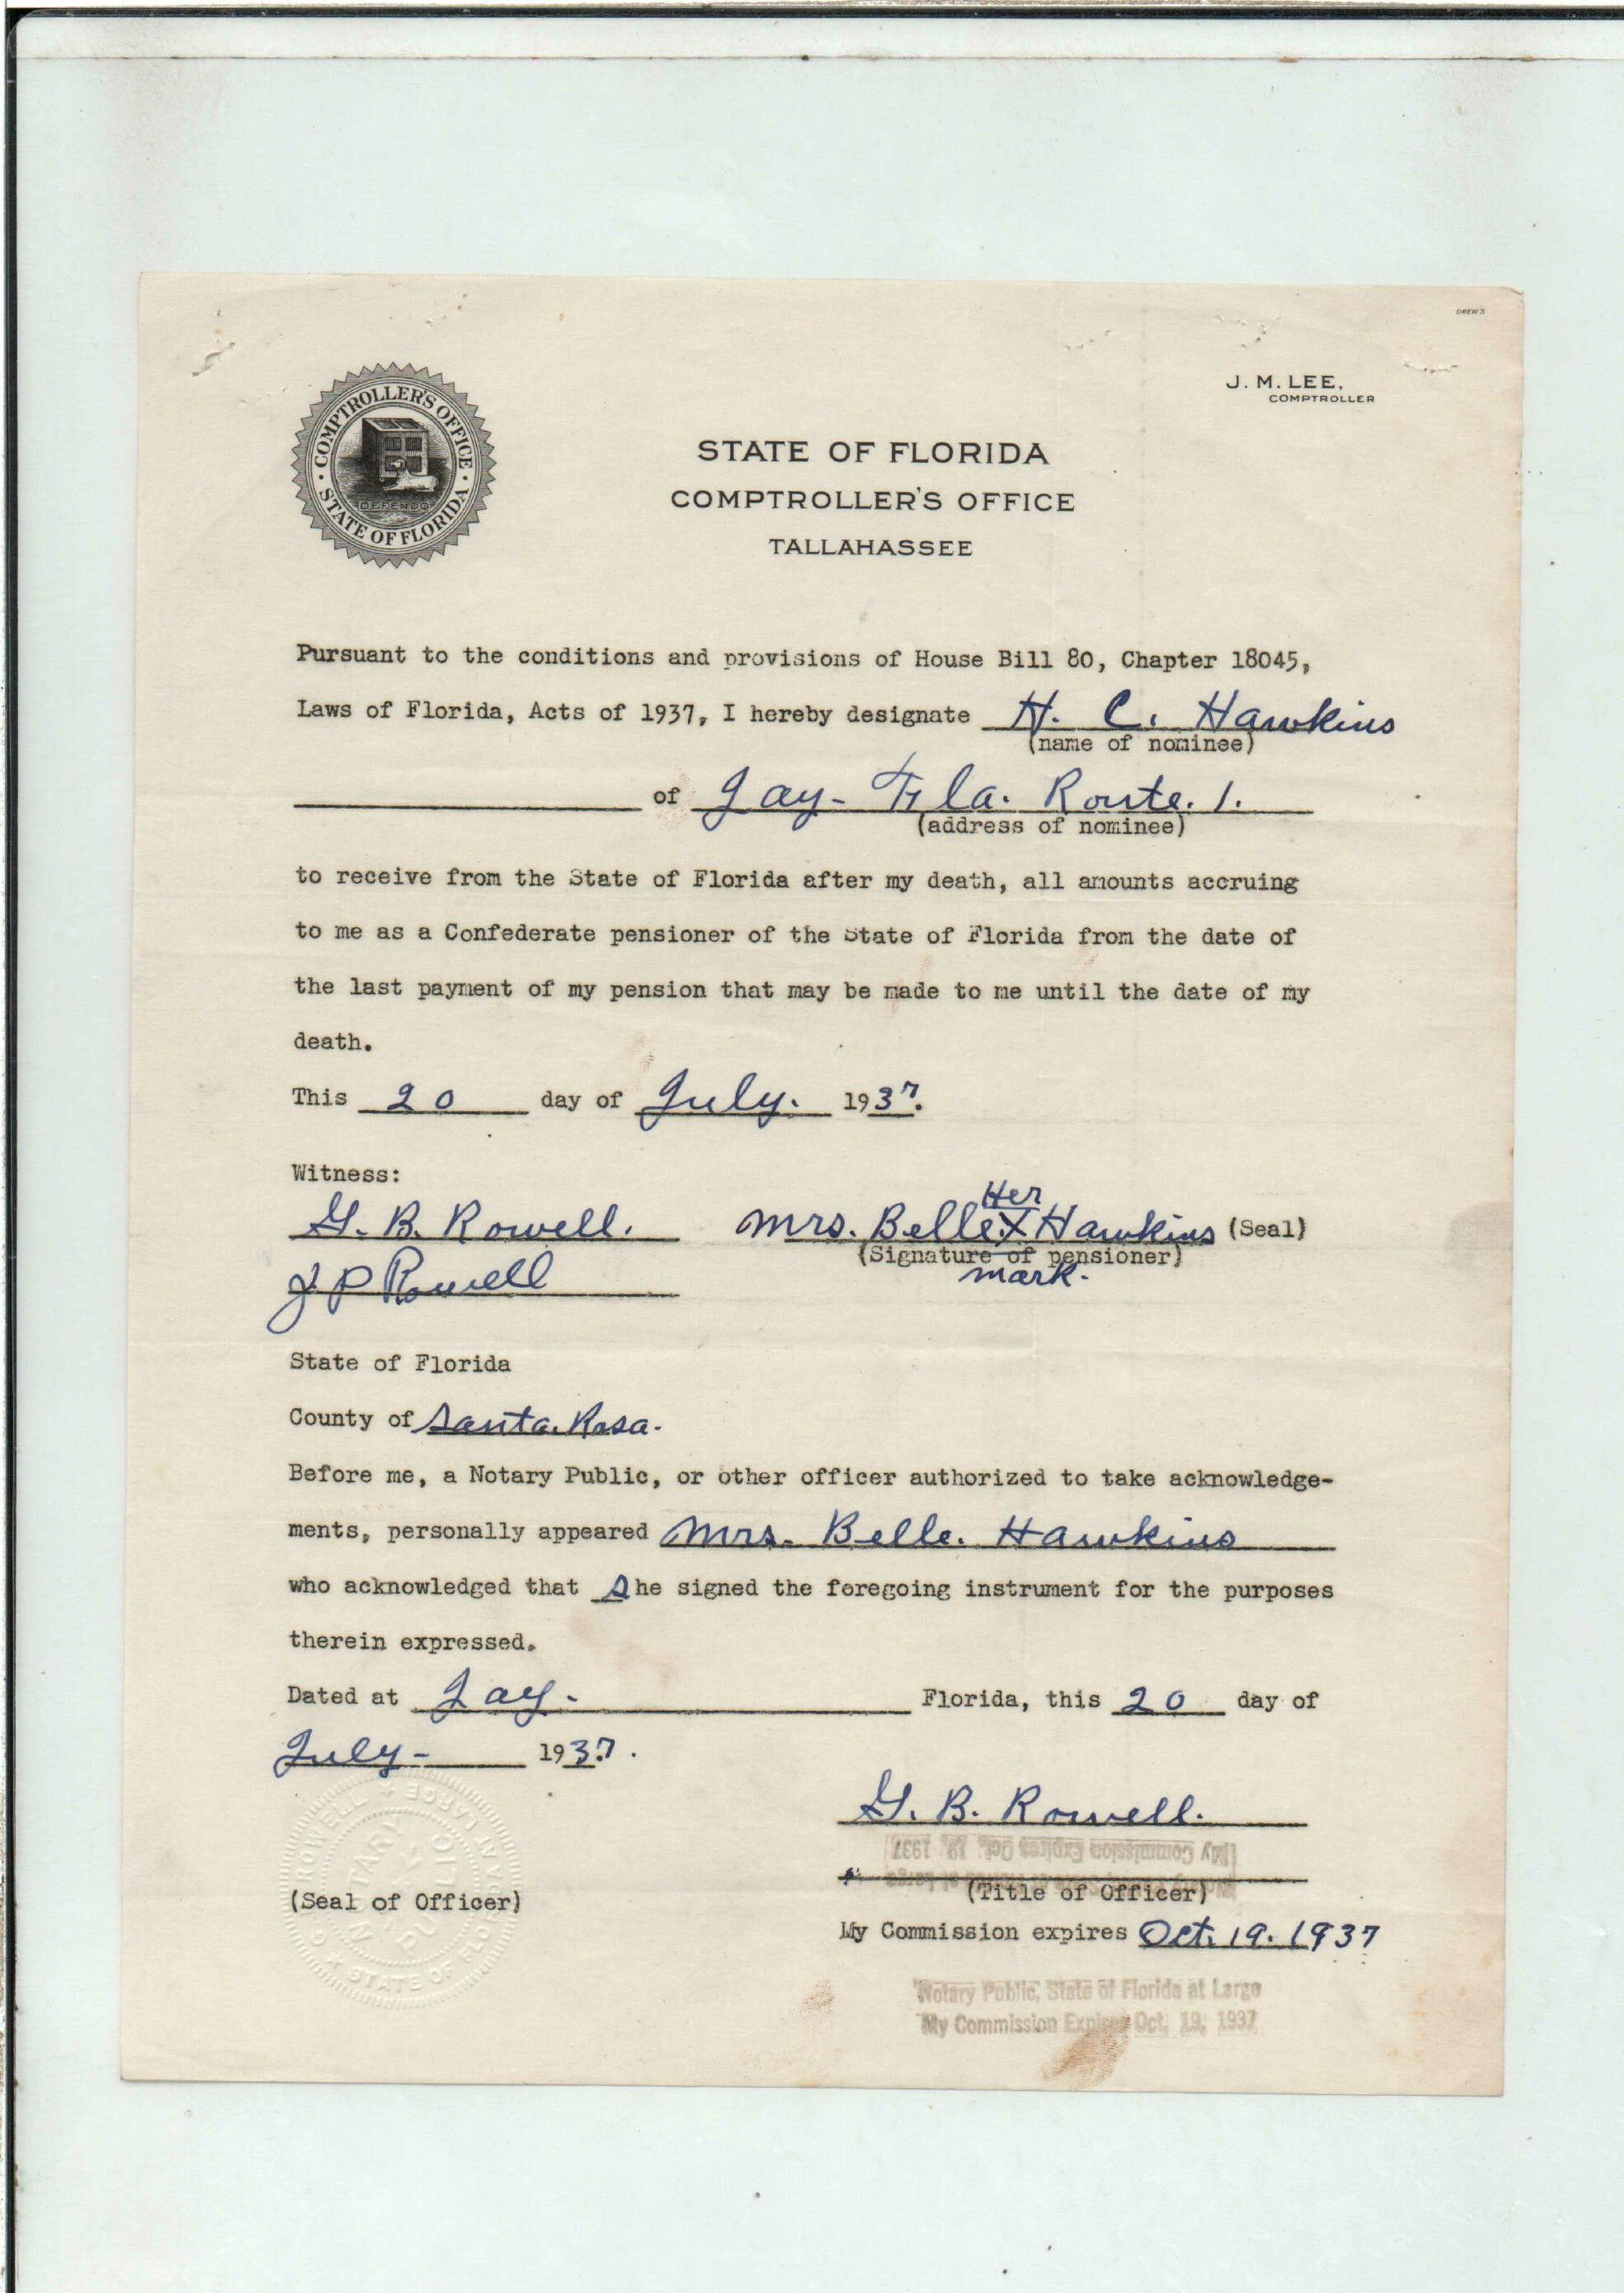 DREWS
J. M. LEE,
COMPTROLLER
COMPTROLLER'S OFFICE
DEFENDO
STATE OF FLORIDA
STATE OF FLORIDA
COMPTROLLER'S OFFICE
TALLAHASSEE
Pursuant to the conditions and provisions of House Bill 80, Chapter 18045,
Laws of Florida, Acts of 1937, I hereby designate H. C. Hawkins
(name of nominee)
of Jay- Fla. Route. 1.
(address of nominee)
to receive from the State of Florida after my death, all amounts accruing
to me as a Confederate pensioner of the State of Florida from the date of
the last payment of my pension that may be made to me until the date of my
death.
This 20 day of July. 1937.
Witness:
Her
G. B. Rowell. Mrs. Belle X Hawkins (Seal)
(Signature of pensioner)
J P Rowell mark.
State of Florida
County of Santa. Rosa.
Before me, a Notary Public, or other officer authorized to take acknowledge-
ments, personally appeared Mrs. Belle. Hawkins
who acknowledged that She signed the foregoing instrument for the purposes
therein expressed.
Dated at Jay. Florida, this 20 day of
July- 1937.
G. B. Rowell.
My Commission Expires Oct. 19, 1937
(Title of Officer)
(Seal of Officer)
ROWELL
NOTARY PUBLIC
STATE OF FLORIDA AT LARGE
My Commission expires Oct. 19. 1937
Notary Public, State of Florida at Large
My Commission Expires Oct. 19, 1937